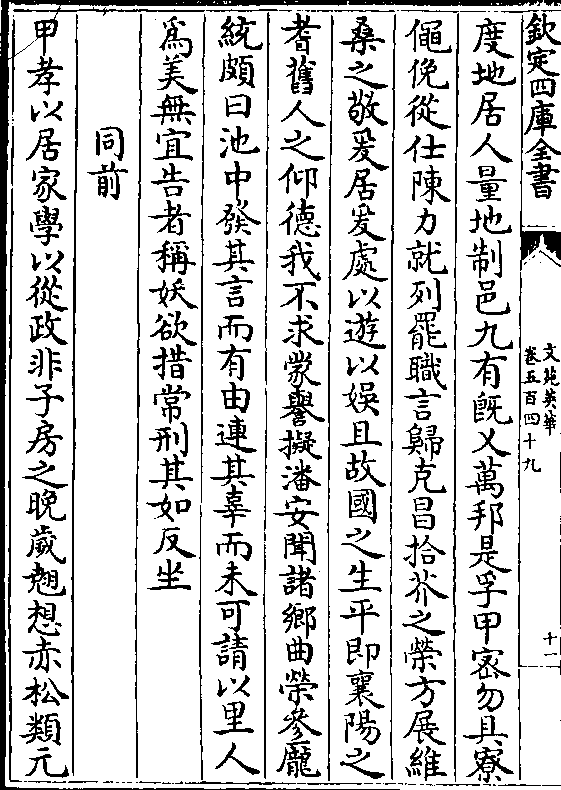 欽定四庫全書
文苑英華
卷五百四十九
十一
度地居人量地制邑九有旣乂萬邦是孚甲宻勿具寮
僶俛從仕陳力就列罷職言歸克昌拾芥之榮方展維
桑之敬爰居爰處以遊以娱且故國之生平即襄陽之
耆舊人之仰德我不求蒙譽擬潘安聞諸鄉曲榮參龎
統頗曰池中發其言而有由連其辜而未可請以里人
爲美無宜告者稱妖欲措常刑其如反坐
同前
甲孝以居家學以從政非子房之晩嵗翹想赤松類元